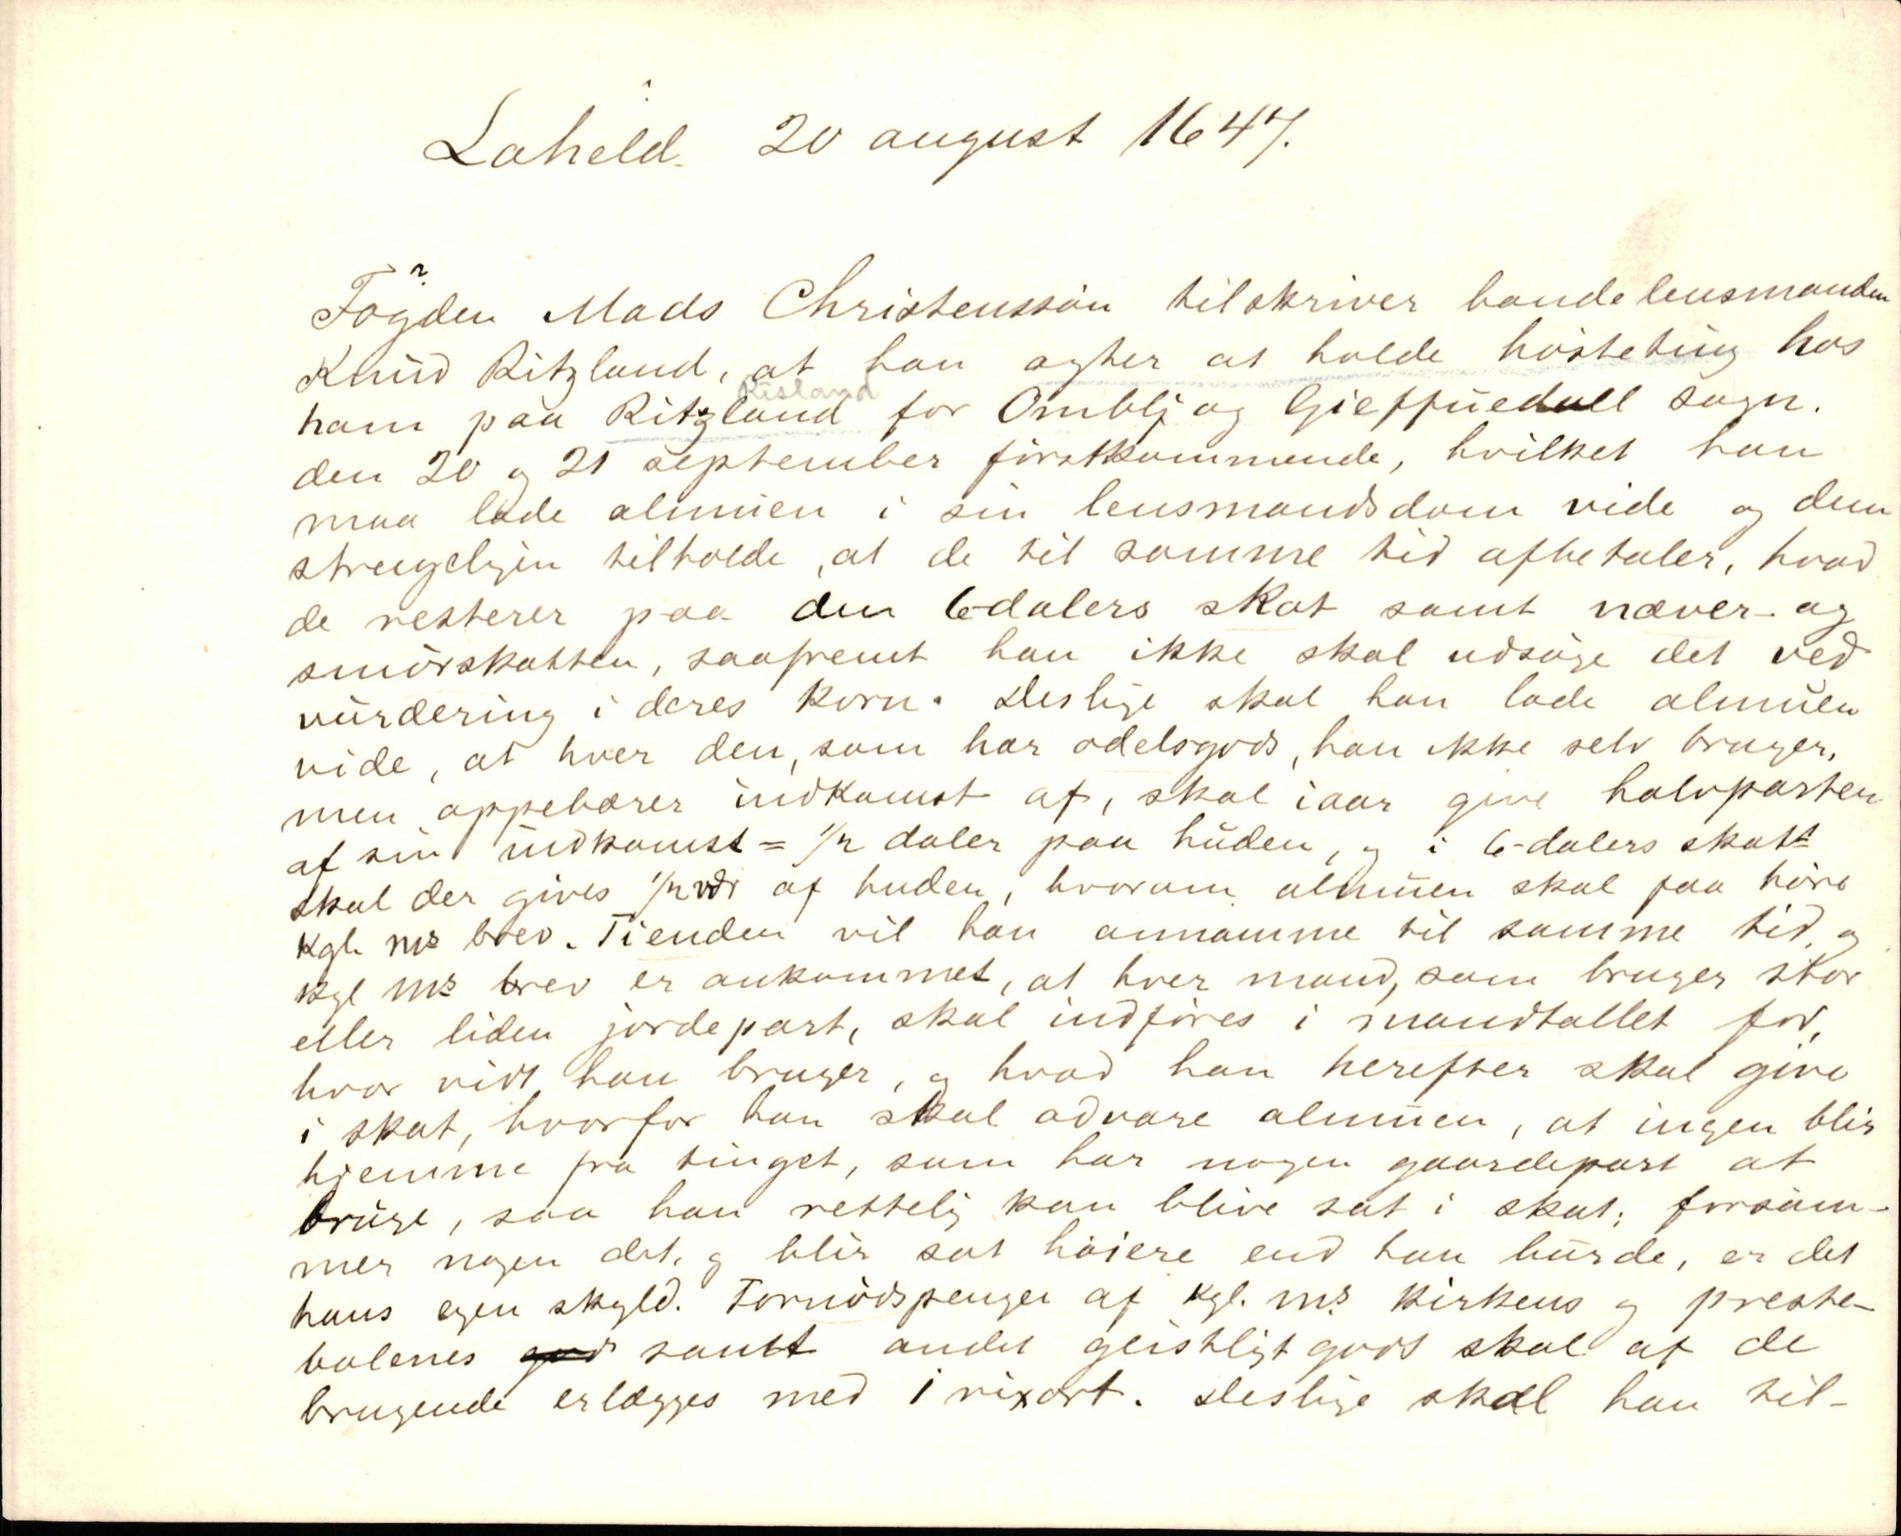 Laheld 20 august 1647.
Fogden Mads Christenssön tilskriver bondelensmanden
Knud Ritzland, at han agter at holde hösteting hos
Risland
ham paa Ritzland for Omblj og Gieffuedall sogn.
den 20 og 21 september förstkommende, hvilket han
maa lade almuen i sin lensmandsdom vide og dem
strengeligen tilholde, at de til samme tid afbetaler, hvad
de resterer paa den 6-dalers skat samt næver- og
smörskatten, saafremt han ikke skal udsöge det ved
vurdering i deres korn. Deslige skal han lade almuen
vide, at hver den, som har odelsgods, han ikke selv bruger,
men oppebærer indkomst af, skal iaar give halvparten
af sin indkomst = 1/2 daler paa huden, og i 6-dalers skatt
skal der gives 1/2 rdr af huden, hvorom almuen skal faa höre
kgl. Ms brev. Tienden vil han annamme til samme tid, og
kgl Ms brev er ankommet, at hver mand, som bruger stor
eller liden jordepart, skal indföres i mandtallet for,
hvor vidt han bruger, og hvad han herefter skal give
i skat, hvorfor han skal advare almuen, at ingen blir
hjemme fra tinget, som har nogen gaardepart at
bruge, saa han rettelig kan blive sat i skat; forsöm-
mer nogen det, og blir sat höiere end han burde, er det
hans egen skyld. Fornödspenger af kgl. Ms kirkens og preste-
bolenes samt andet geistligt gods skal af de
brugende erlægges med 1 rixort. Deslige skal han til-